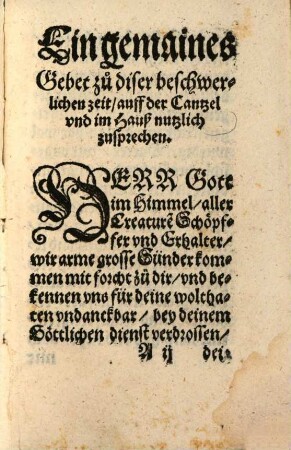 Ein gemaines
Gebet zů diser beschwer⸗
lichen zeit/ auff der Cantzel
vnd im Hauß nutzlich
zusprechen.
HERR Gott
im Himmel/ aller
Creaturẽ Schöpf⸗
fer vnd Erhalter/
wir arme grosse Sünder kom⸗
men mit forcht zů dir/ vnd be⸗
kennen vns für deine woltha⸗
ten vndanckbar/ bey deinem
Göttlichen dienst verdrossen/
A ij dei⸗